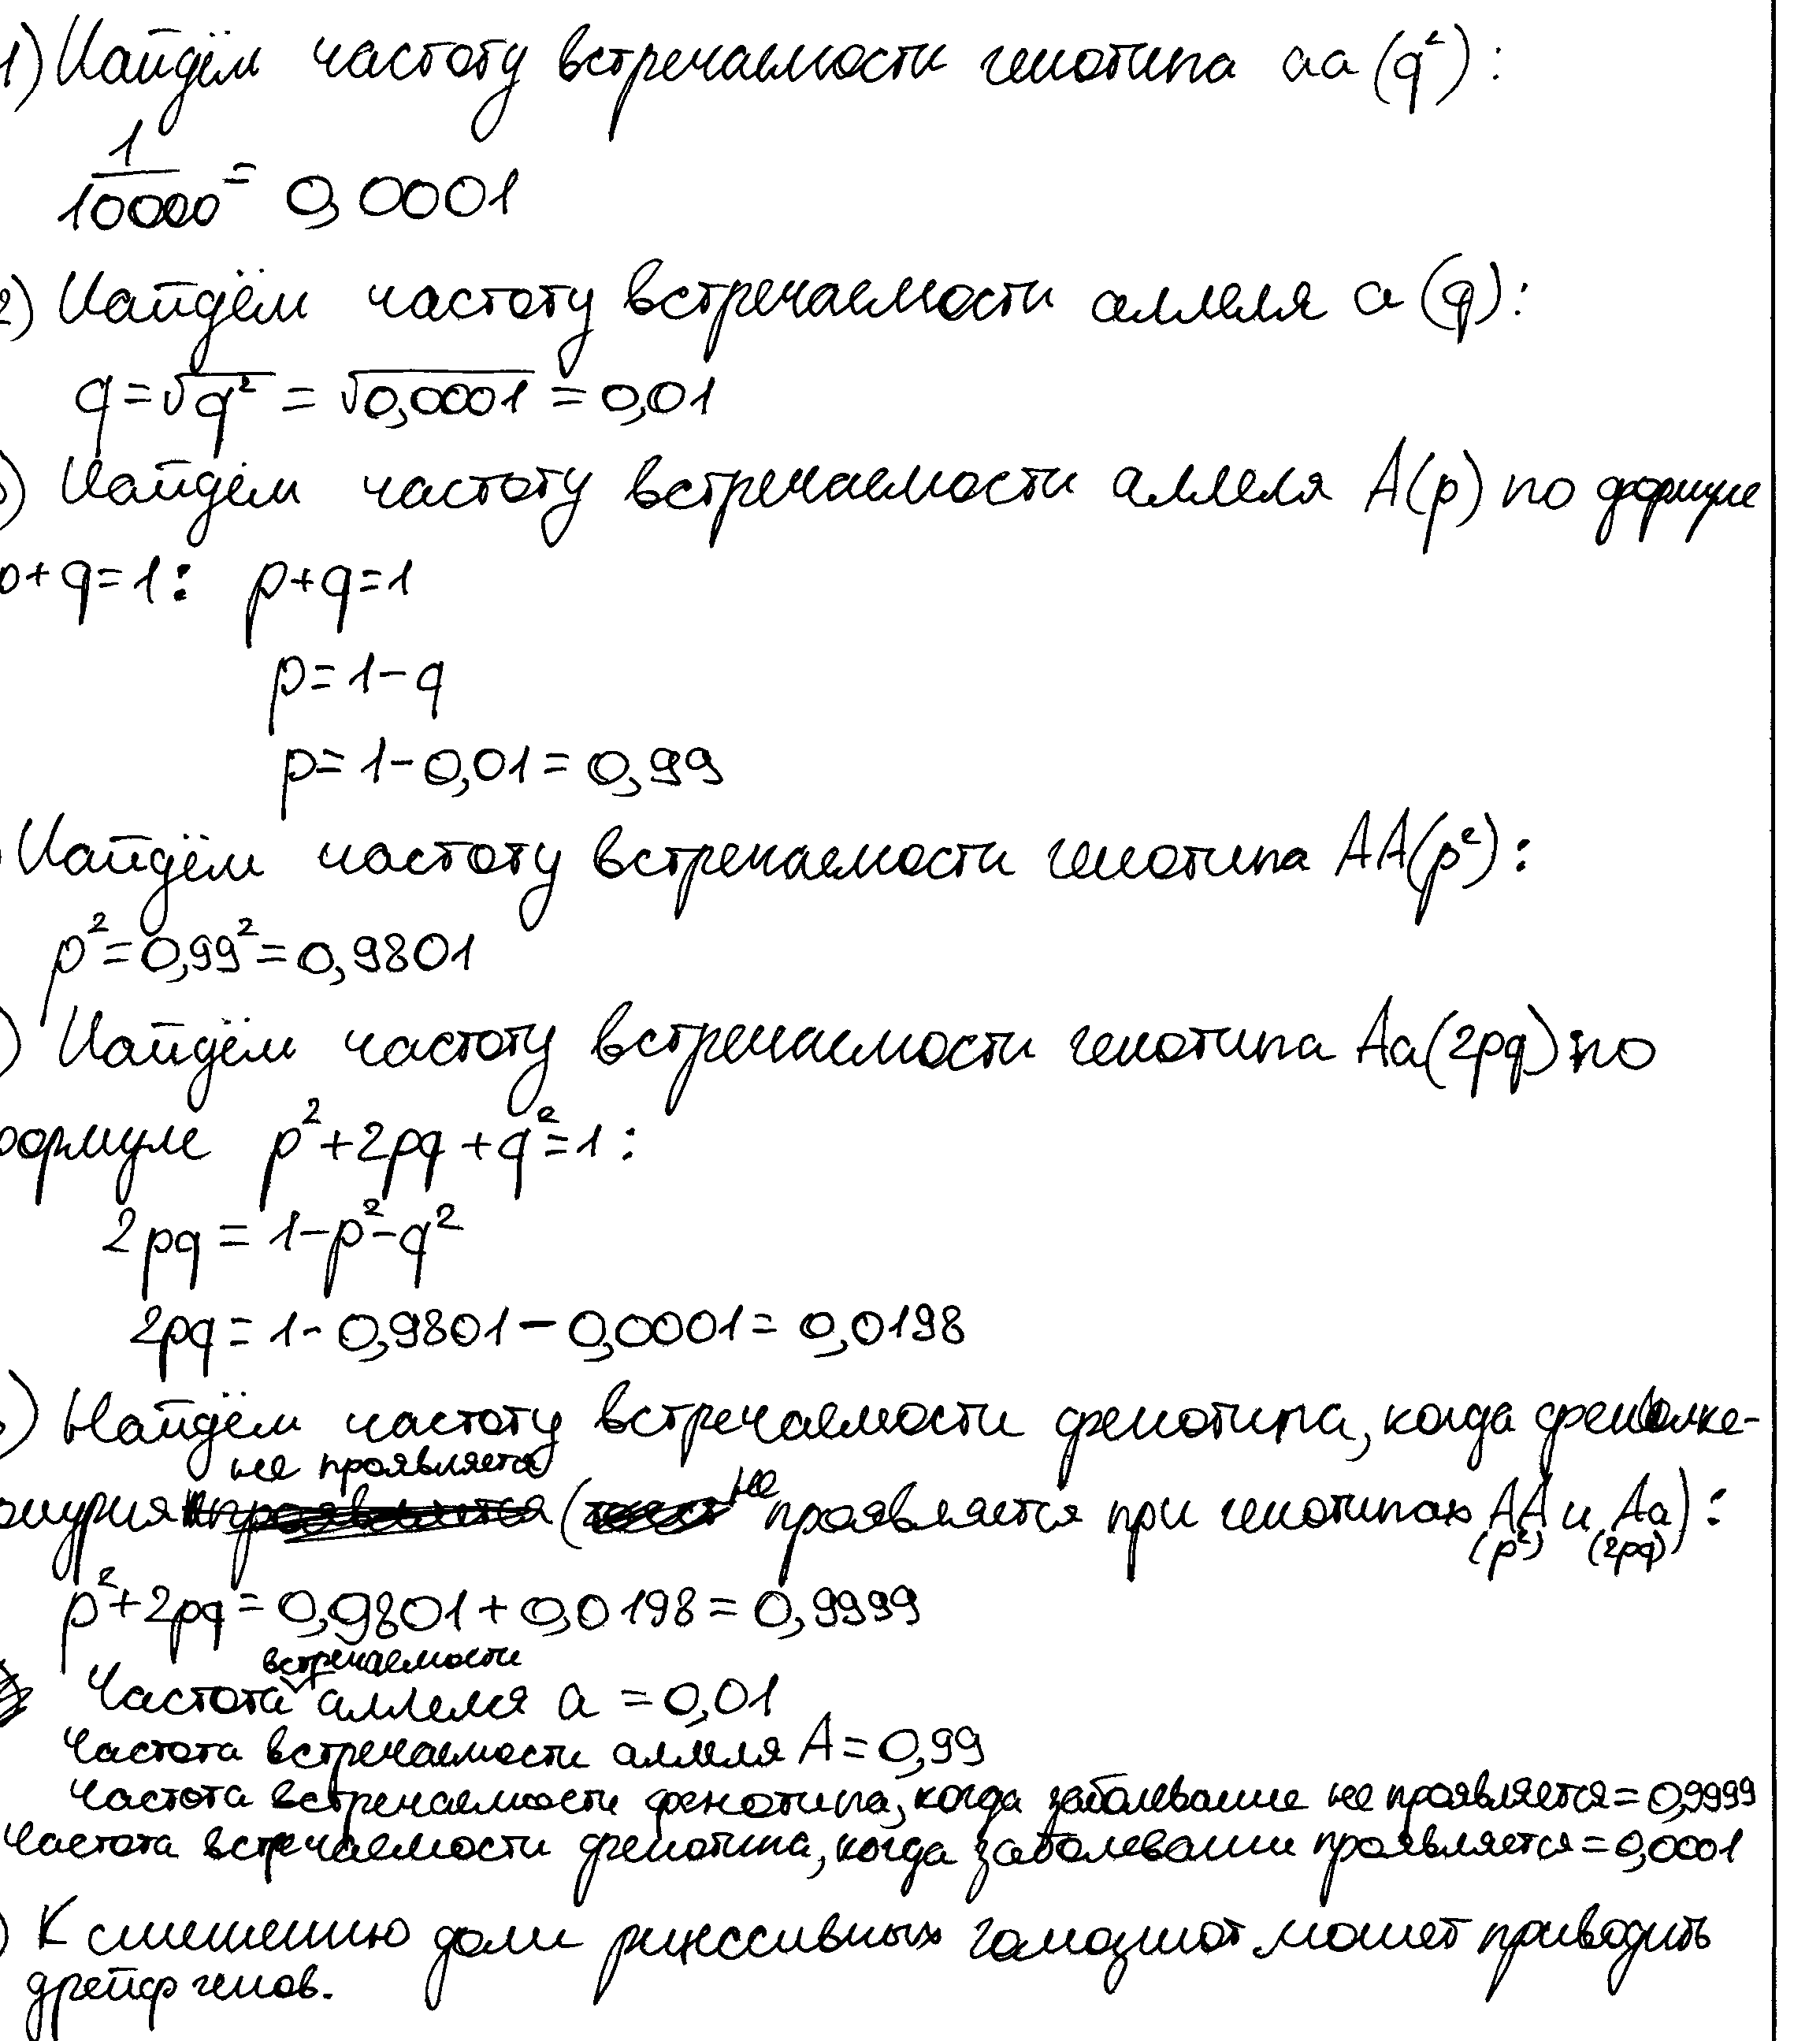 1) Найдём частоту встречаемости генотипа aa (q²):
1/10000 = 0,0001
2) Найдём частоту встречаемости аллеля a (q):
q = √q² = √0,0001 = 0,01
) Найдём частоту встречаемости аллеля A(p) по формуле
p+q=1: p+q=1
p=1-q
p=1-0,01=0,99
Найдём частоту встречаемости генотипа AA(p²):
p²=0,99²=0,9801
) Найдём частоту встречаемости генотипа Aa(2pq) по
формуле p²+2pq+q²=1:
2pq = 1-p²-q²
2pq = 1-0,9801-0,0001 = 0,0198
) Найдём частоту встречаемости фенотипа, когда фенилке-
не проявляется
онурия (не проявляется при генотипах AA и Aa):
(p²) (2pq)
p²+2pq = 0,9801+0,0198 = 0,9999
встречаемости
Частота аллеля a = 0,01
Частота встречаемости аллеля A = 0,99
Частота встречаемости фенотипа, когда заболевание не проявляется = 0,9999
Частота встречаемости фенотипа, когда заболевание проявляется = 0,0001
) К смешению доли рицессивных гомозигот может приводить
дрейф генов.